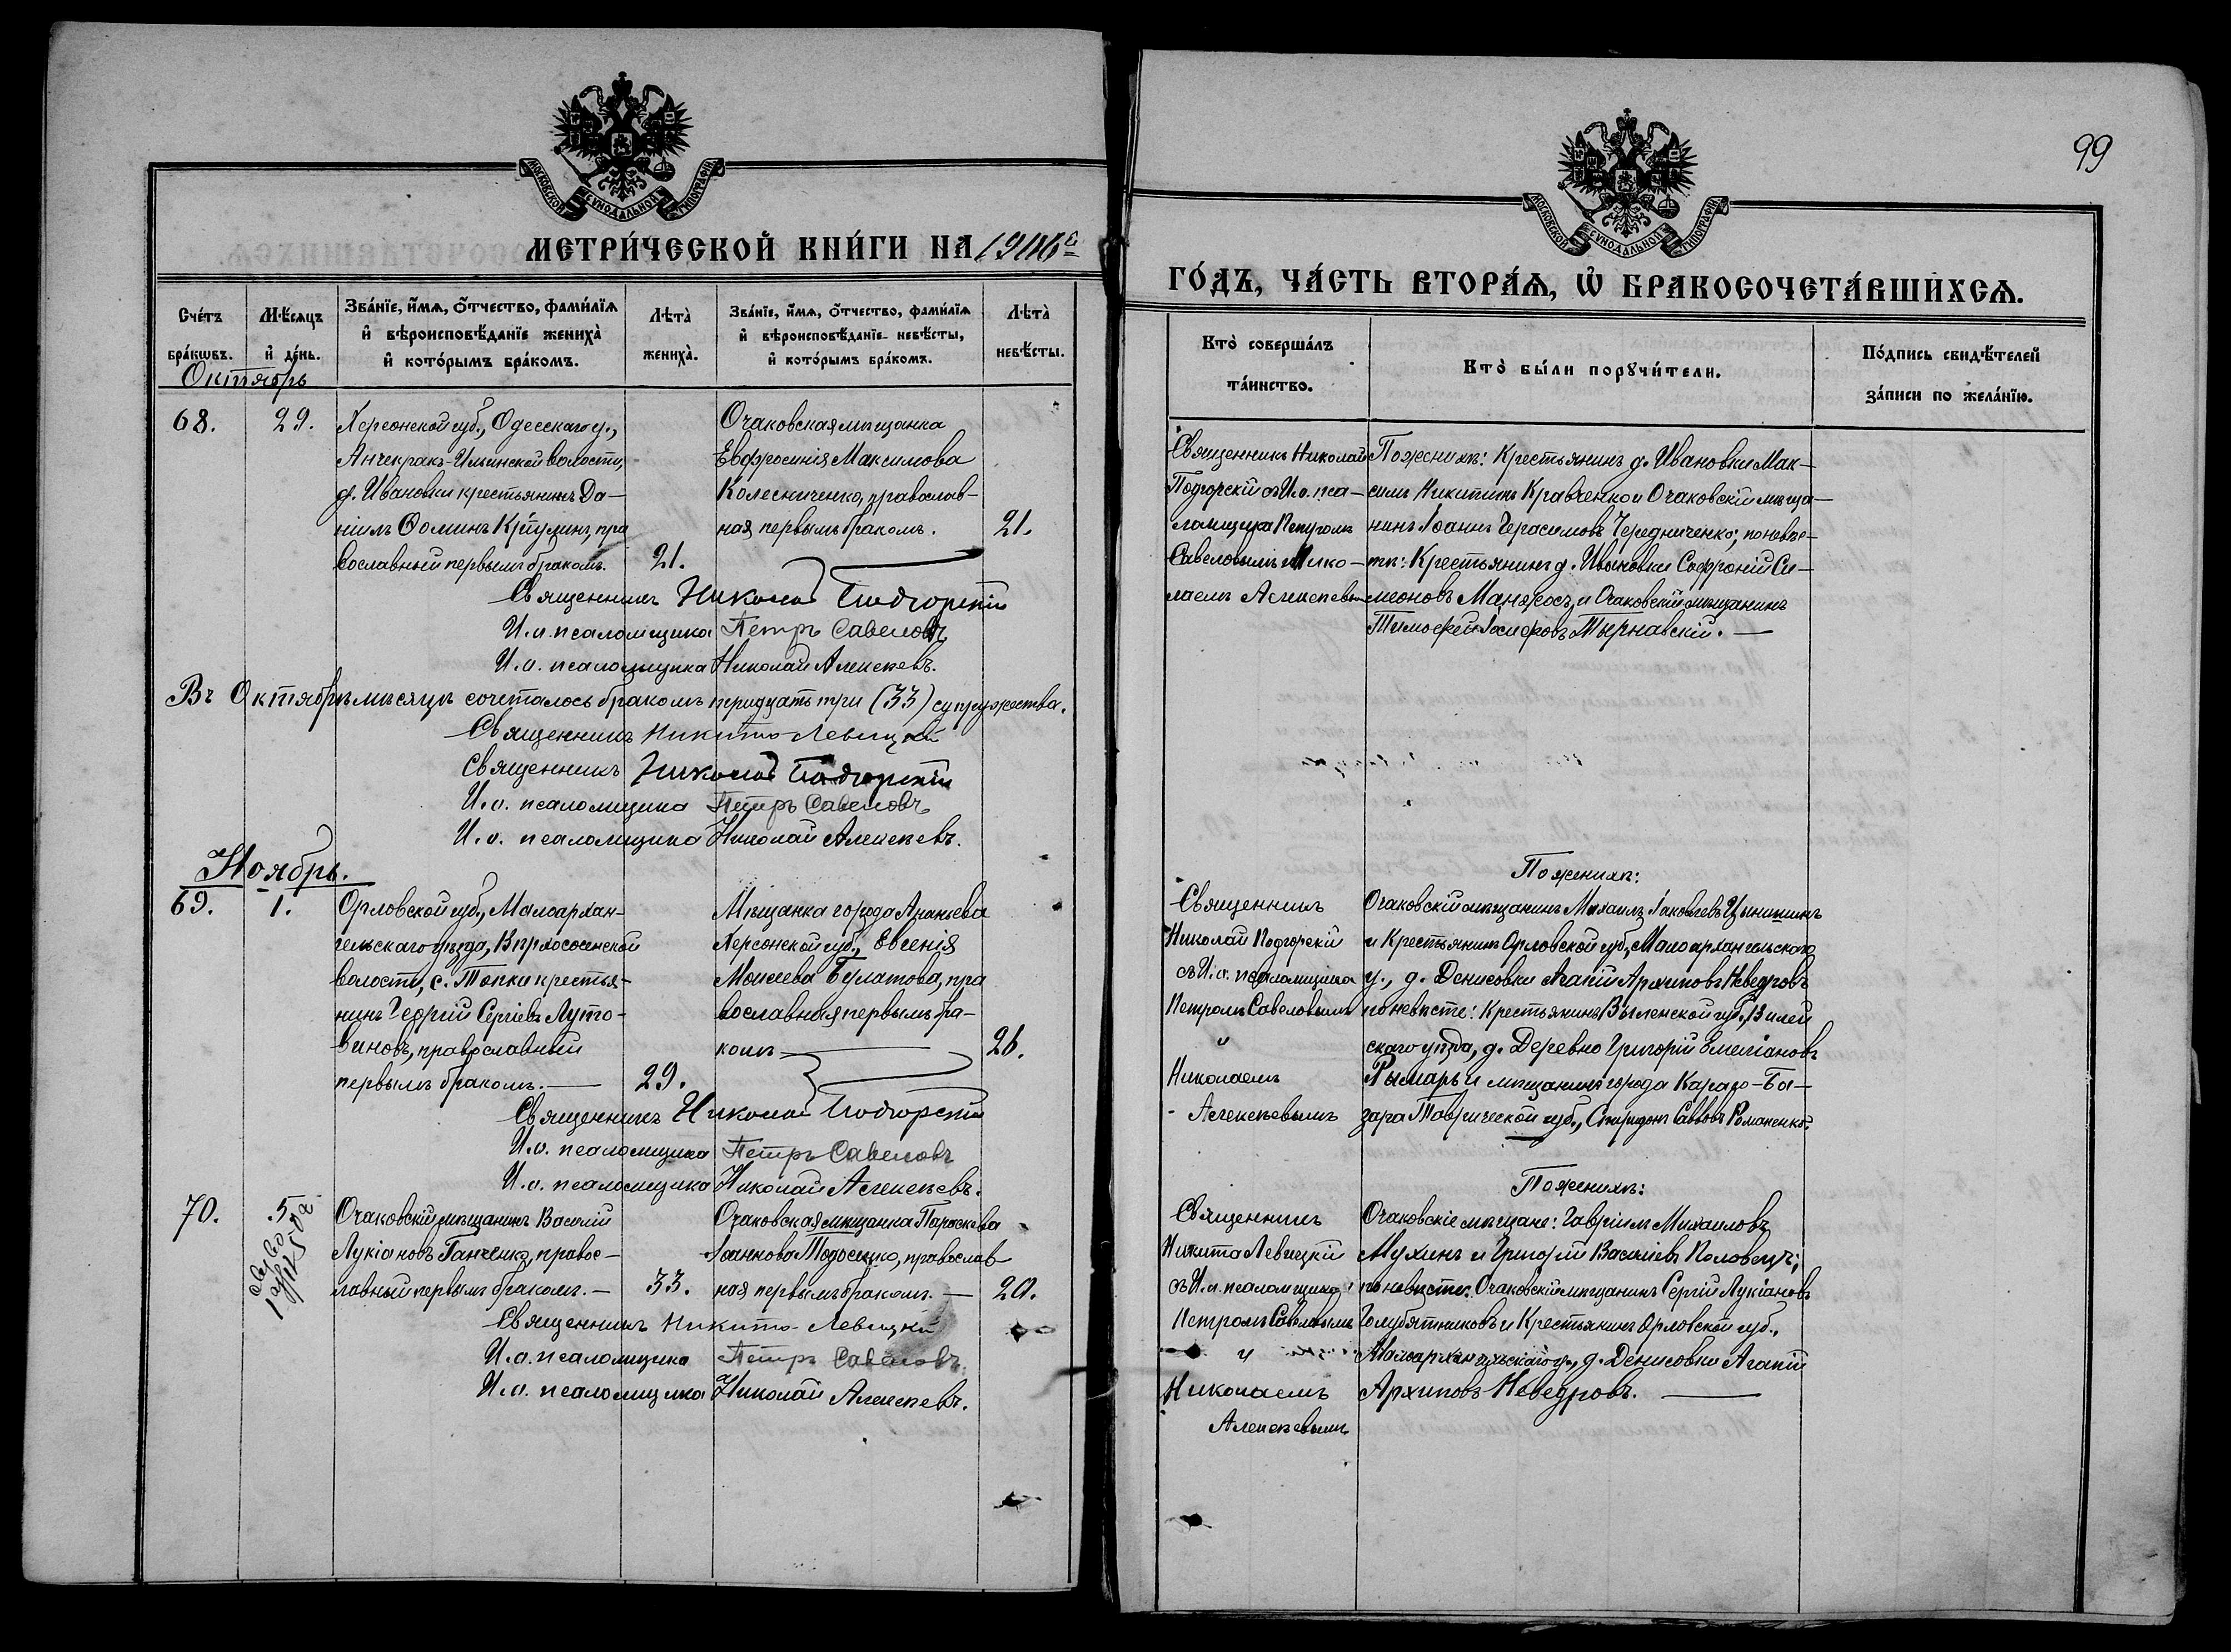 МОСКОВСКОЙ СѴНОДАЛЬНОЙ ТИПОГРАФІИ
МЕТРИ́ЧЕСКОЙ КНИ́ГИ НА
Сче́тъ бра́кѡвъ.
Мѣ́сяцъ и҆ де́нь.
Зва́нїе, и҆́мѧ, ѻ҆́тчество, фами́лїѧ
и҆ вѣроисповѣ́данїе жениха̀
и҆ кото́рымъ бра́комъ.
Лѣта̀ жениха̀.
Зва́нїе, и҆́мѧ, ѻ҆́тчество, фами́лїѧ
и҆ вѣроисповѣ́данїе невѣ́сты,
и҆ кото́рымъ бра́комъ.
Лѣта̀ невѣ́сты.
Октябрь
68.
29.
Херсонской губ., Одесскаго у.,
Анчекракъ-Ильинской волости,
д. Ивановки крестьянинъ Да-
ніилъ Ѳоминъ пра
вославный первымъ бракомъ.
21.
Очаковская мѣщанка
Евфросинія Максимова
Колесниченко, православ-
ная первымъ бракомъ.
21.
Священникъ Николай Подгорскій
И.о. псаломщика Петръ Савеловъ
И.о. псаломщика Николай Алексѣевъ.
Въ Октябрѣ мѣсяцѣ сочеталось бракомъ тридцать три (33) супружества.
Священникъ Никита Левицкій
Священникъ Николай Подгорскій
И.о. псаломщика Петръ Савеловъ
И.о. псаломщика Николай Алексѣевъ.
Ноябрь.
69.
1.
Орловской губ., Малоархан-
гельскаго уѣзда,
волости, с. Топки крестья-
нинъ Георгій Сергіевъ Луто-
виновъ, православный
первымъ бракомъ.
29.
Мѣщанка города Ананьева
Херсонской губ., Евгенія
Моисеева Булатова, пра
вославная первымъ бра-
комъ
26.
Священникъ Николай Подгорскій
И.о. псаломщика Петръ Савеловъ
И.о. псаломщика Николай Алексѣевъ.
70.
5
Очаковскій мѣщанинъ Василій
Лукіановъ Ганченко, правос-
лавный первымъ бракомъ.
33.
Очаковская мѣщанка Параскева
Іоаннова Тодосенко, православ
ная первымъ бракомъ.
20.
Священникъ Никита Левицкій
И.о. псаломщика Петръ Савеловъ
И.о. псаломщика Николай Алексѣевъ.
99
МОСКОВСКОЙ СѴНОДАЛЬНОЙ ТИПОГРАФІИ
ГО́ДЪ, ЧА́СТЬ ВТОРА́Ѧ, Ѡ҆ БРАКОСОЧЕТА́ВШИХСѦ.
Кто̀ соверша́лъ
та́инство.
Кто̀ бы́ли порꙋчи́тели.
По́дпись свидѣ́телей
за́писи по жела́нїю.
Священникъ Николай
Подгорскій съ И.о. пса-
ломщика Петромъ
Савеловымъ и Нико-
лаемъ Алексѣевым
По женихѣ: Крестьянинъ д. Ивановки Мак-
симъ Никитинъ Кравченко и Очаковскій мѣща-
нинъ Іоаннъ Герасимовъ Чередниченко; по невѣс-
тѣ: Крестьянинъ д. Ивановки Софроній Си-
меоновъ Манжосъ, и Очаковскій мѣщанинъ
Тимофей Іосифовъ Тырнавскій.
Священникъ
Николай Подгорскій
съ И.о. псаломщика
Петромъ Савеловымъ
и
Николаемъ
Алексѣевымъ
По женихѣ:
Очаковскій мѣщанинъ Михаилъ Іаковлевъ
и Крестьянинъ Орловской губ., Малоархангельскаго
у., д. Денисовки Агапій Архиповъ Неведровъ
по невѣстѣ: Крестьянинъ Виленской губ., Вилей
скаго уѣзда, д. Деревно Григорій Емеліановъ
Рымарь и мѣщанинъ города Карасу-Ба-
зара Таврической губ., Спиридонъ Саввовъ Романенко.
Священникъ
Никита Левицкій
съ И.о. псаломщика
Петромъ Савеловымъ
и
Николаемъ
Алексѣевымъ
По женихѣ:
Очаковскіе мѣщане: Гавріилъ Михаиловъ
Мухинъ и Григорій Василіевъ Половецъ;
по невѣстѣ: Очаковскій мѣщанинъ Сергій Лукіановъ
Голубятниковъ и Крестьянинъ Орловской губ.,
Малоархангельскаго у., д. Денисовки Агапій
Архиповъ Неведровъ.